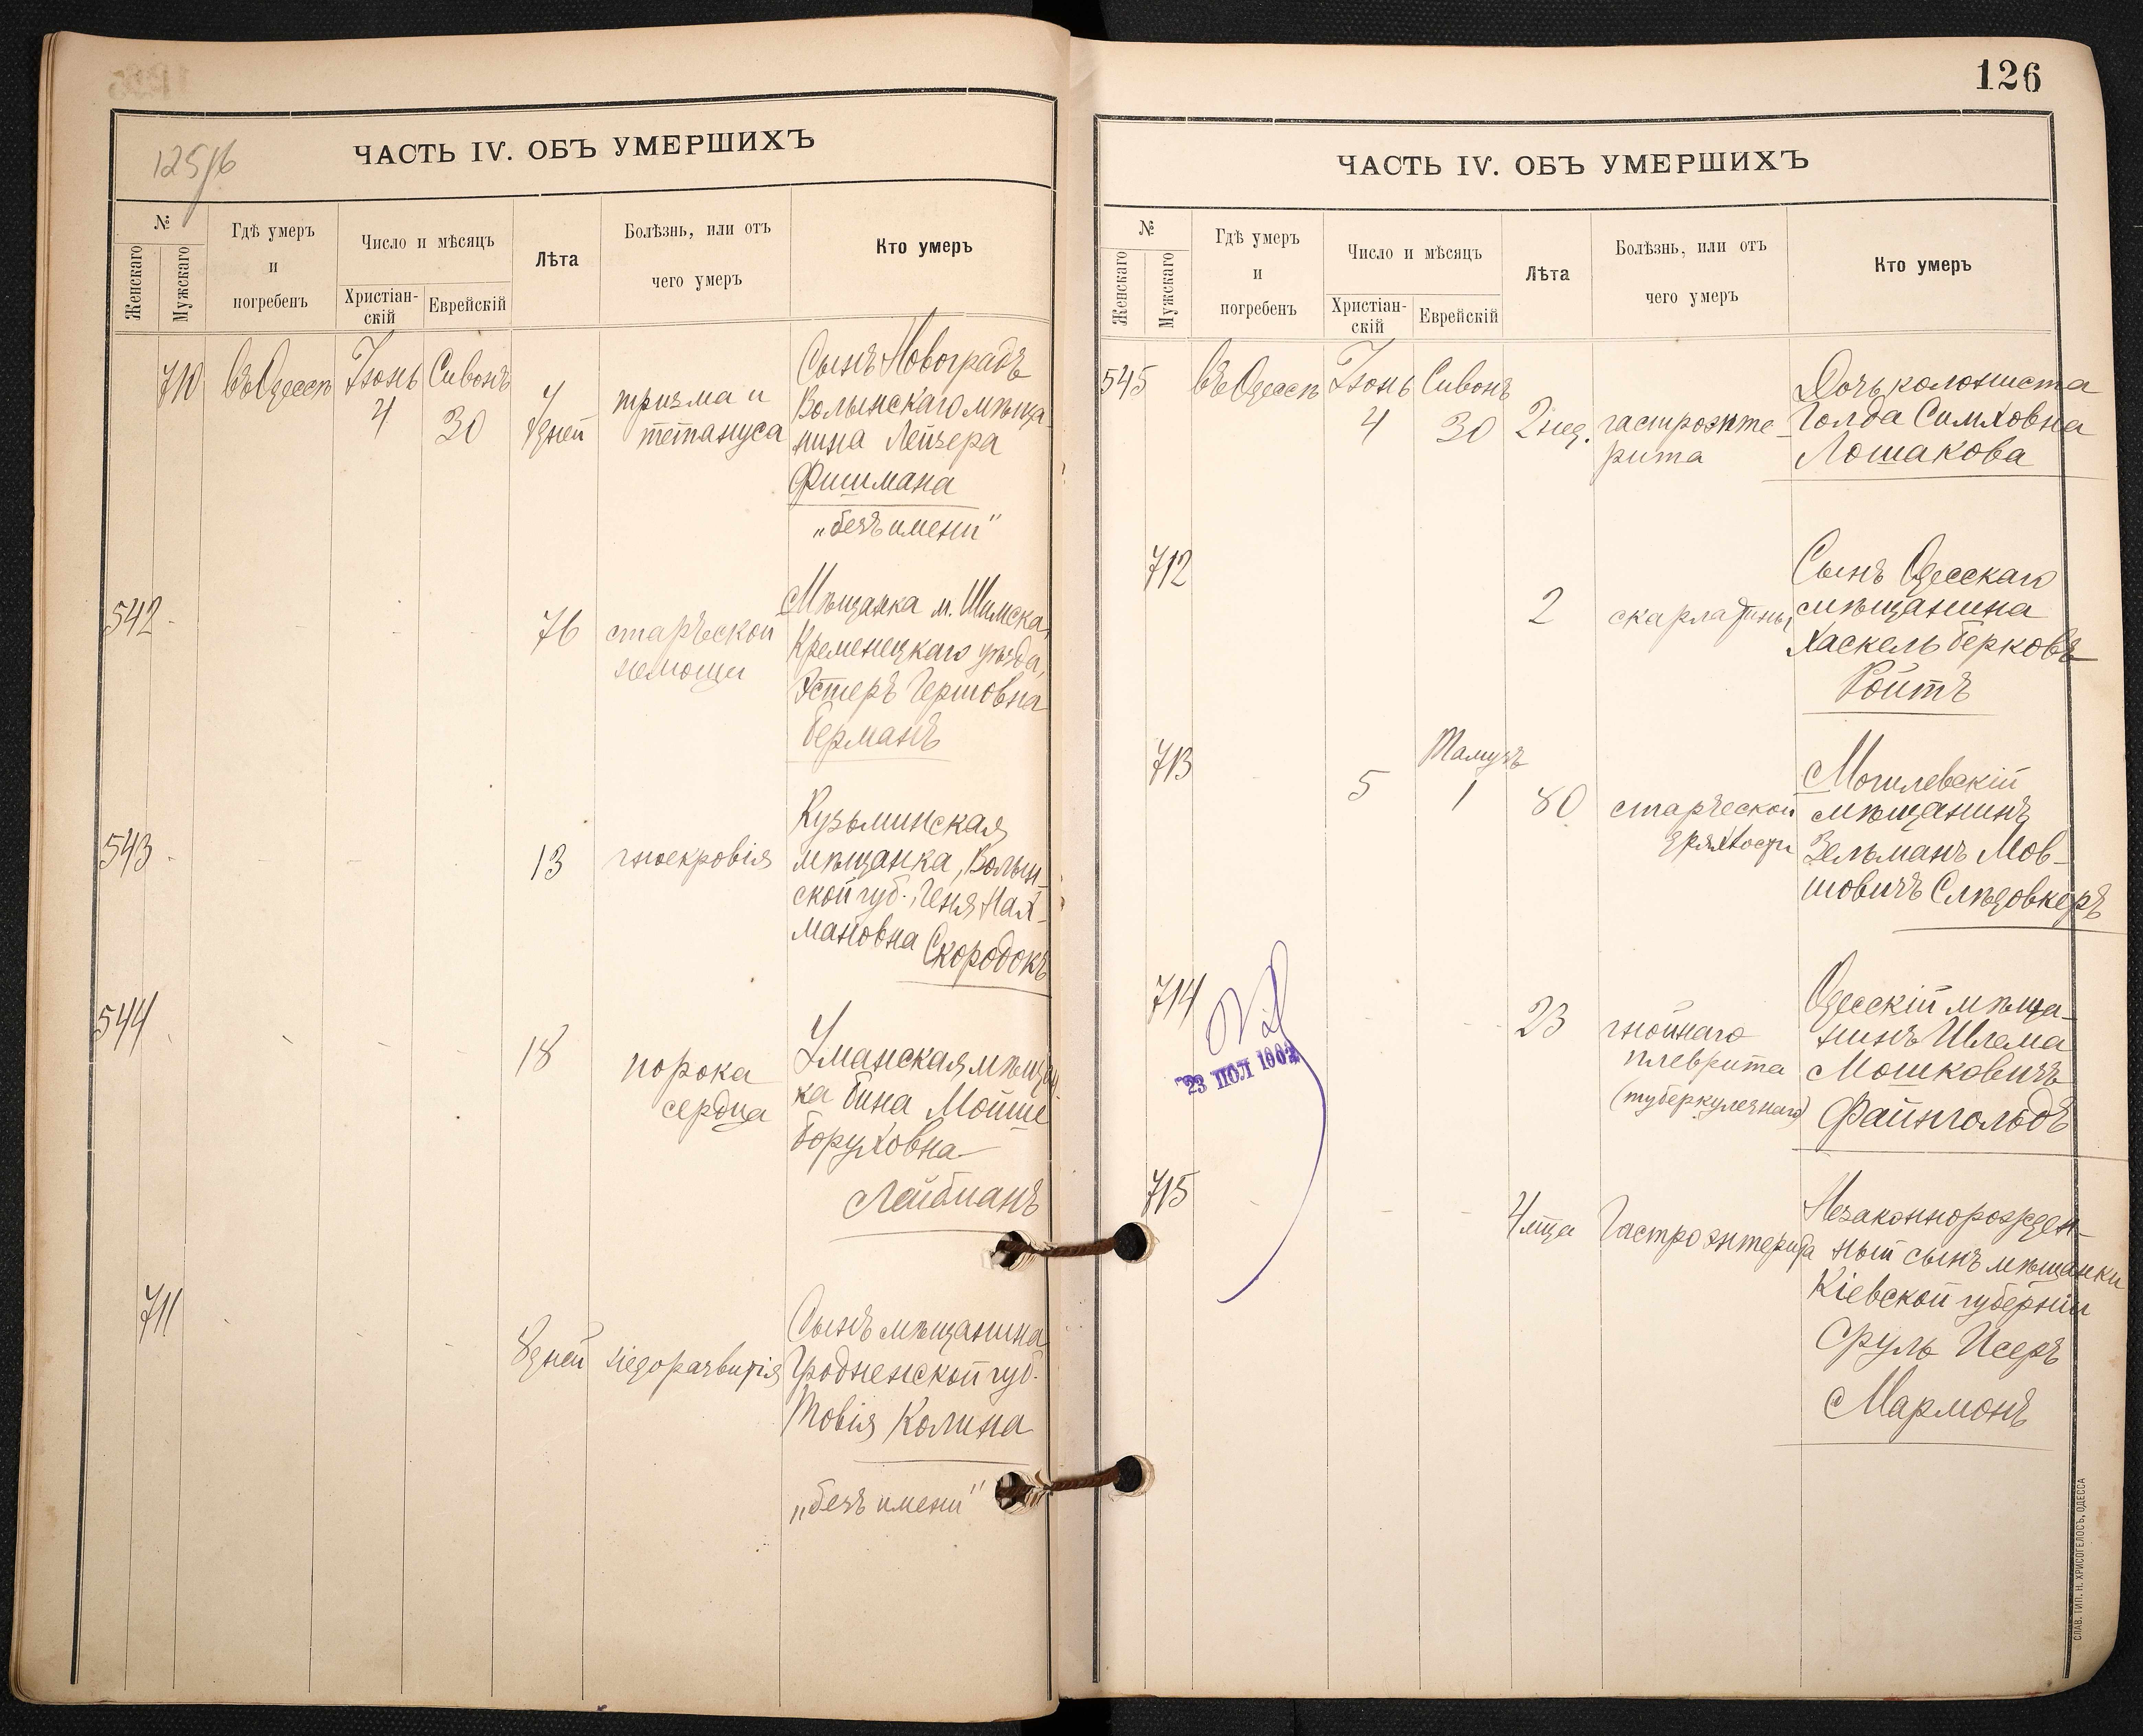 125/б
ЧАСТЬ IV. ОБЪ УМЕРШИХЪ
№
Женскаго
Мужскаго
Гдѣ умеръ
и
погребенъ
Число и мѣсяцъ
Христіан-
скій
Еврейскій
Лѣта
Болѣзнь, или отъ
чего умеръ
Кто умеръ
710
въ Одессѣ
Іюнь
4
Сивонъ
30
дней
тризма и
тетануса
Сынъ Новоградъ
Волынскаго мѣща-
нина Лейзера
Фишмана
„безъ имени"
542
76
старческой
немощи
Мѣщанка м. Шимска,
Кременецкаго уѣзда,
Эстеръ Гершовна
Берманъ
543
13
гноекровія
Кузьминская
мѣщанка, Волын-
ской губ. Геня Нах-
мановна Скородокъ
544
18
порока
сердца
Уманская мѣщан-
ка Бина Мойше
Боруховна
Лейбманъ
711
8 дней
недоразвитія
Сынъ мѣщанина
Гродненской губ.
Товія Колина
„безъ имени"
126
ЧАСТЬ IV. ОБЪ УМЕРШИХЪ
№
Женскаго
Мужскаго
Гдѣ умеръ
и
погребенъ
Число и мѣсяцъ
Христіан-
скій
Еврейскій
Лѣта
Болѣзнь, или отъ
чего умеръ
Кто умеръ
545
въ Одессѣ
Іюнь
4
Сивонъ
30
2 нед.
гастроэнте-
рита
Дочь колониста
Голда Симховна
Лошакова
712
2
скарлатины
Сынъ Одесскаго
мѣщанина
Хаскель Берковъ
Ройтъ
713
5
Тамузъ
1
80
старческой
дряхлости
Могилевскій
мѣщанинъ
Зельманъ Мов-
шовичъ Слѣдовкеръ
714
23 ІЮЛ 1902
23
гнойнаго
плеврита
(туберкулезнаго)
Одесскій мѣща-
нинъ Шлема
Мошковичъ
Файнгольдъ
715
4 мѣсца
Гастроэнтерита
Незаконнорожден-
ный сынъ мѣщанки
Кіевской губерніи
Сруль Исеръ
Мармонъ
СЛАВ. ТИП. Н. ХРИСОГЕЛОСЪ, ОДЕССА